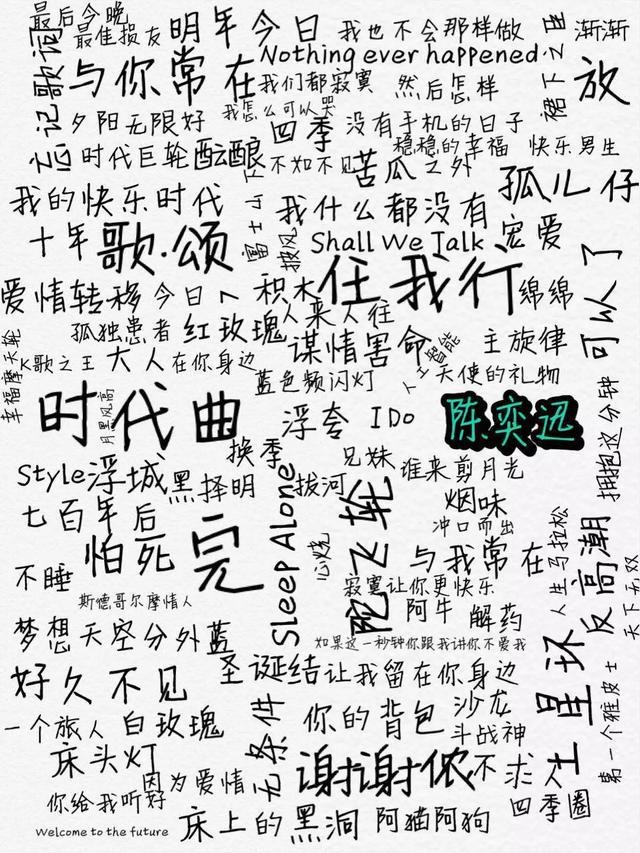 最后今晚
最佳损友
明年今日
我也不会那样做
裙下之臣
渐渐
忘记歌词
与你常在
Nothing ever happened
我们都寂寞
然后怎样
放
夕阳无限好
我怎么可以哭
四季
没有手机的日子
稳稳的幸福
快乐男生
时代巨轮
酝酿
不如不见
苦瓜
之外
孤儿仔
我的快乐时代
富士山下
我什么都没有
十年
歌·颂
披风
Shall We Talk
宠爱
爱情转移
今日
积木
任我行
绵绵
可以了
孤独患者
红玫瑰
人来人往
幸福摩天轮
K歌之王
大人
在你身边
谋情害命
人工智能
主旋律
蓝色频闪灯
天使的礼物
时代曲
月黑风高
浮夸
I Do
陈奕迅
拥抱这分钟
换季
兄妹
谁来剪月光
Style
浮城
黑择明
Sleep Alone
拔河
陀飞轮
烟味
冲口而出
七百年后
怕死
完
心烧
与我常在
人生马拉松
反高潮
不睡
斯德哥尔摩情人
寂寞让你更快乐
阿牛
解药
天下无双
梦想天空分外蓝
如果这一秒钟你跟我讲你不爱我
好久不见
圣诞结
让我留在你身边
第一个雅皮士
一个旅人
白玫瑰
无条件
你的背包
沙龙
斗战神
床头灯
因为爱情
谢谢侬
不求
四季圈
你给我听好
Welcome to the future
床上的黑洞
阿猫阿狗